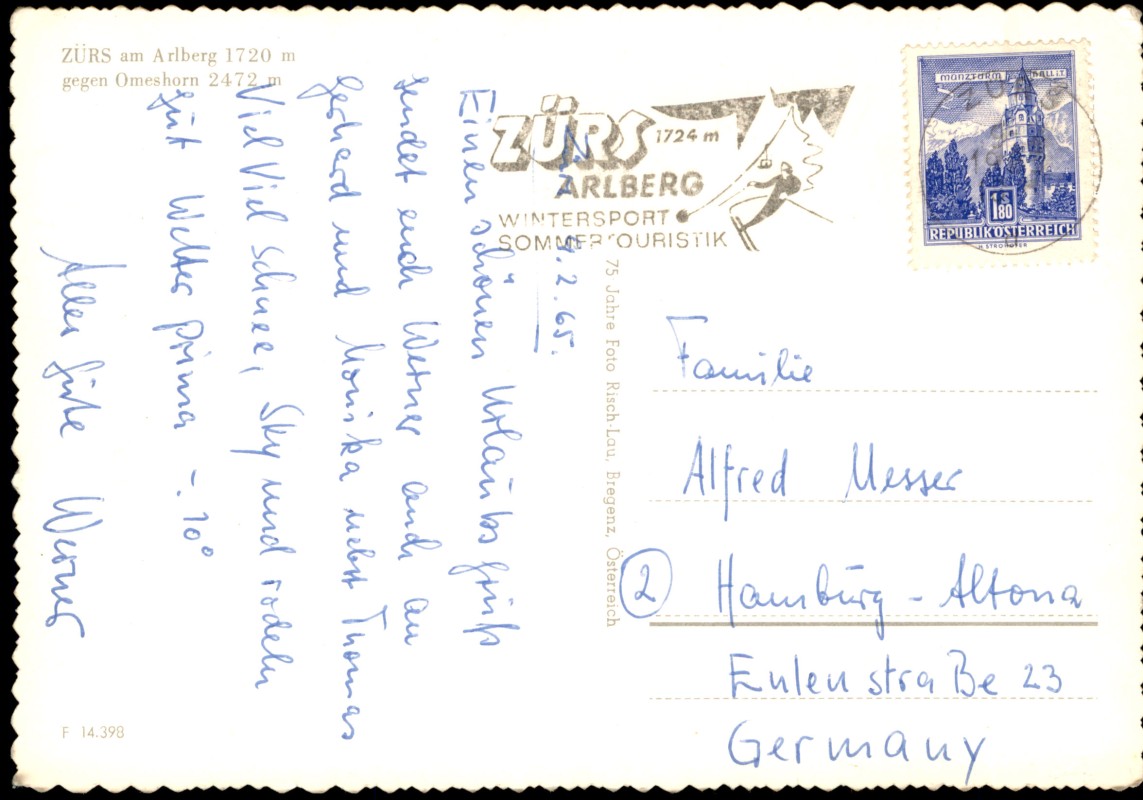 ZÜRS am Arlberg 1720 m
gegen Omeshorn 2472 m
ZÜRS 1724 m
ARLBERG
WINTERSPORT
SOMMERTOURISTIK
MÜNZTURM HALL I.T.
ZÜRS
1 S 80
REPUBLIK ÖSTERREICH
9.2.65.
Einen schönen Urlaubsgruß
sendet euch Werner auch an
Gerhard und Monika nebst Thomas
Viel Viel Schnee, Sky und rodeln
gut Wetter prima -.10°
Alles Gute Werner
75 Jahre Foto Risch-Lau, Bregenz, Österreich
Familie
Alfred Messer
2 Hamburg - Altona
Eulenstraße 23
Germany
F 14.398